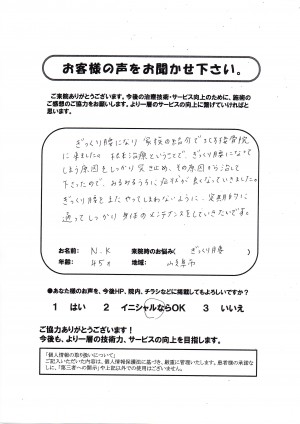 お客様の声をお聞かせ下さい。
ご来院ありがとうございます。今後の治療技術・サービス向上のために、施術の
ご感想のご協力をお願いします。より一層のサービスの向上に繋げていければと
思います。
ぎっくり腰になり 家族の紹介で
に来ました。根本治療ということで、ぎっくり腰になって
しまう原因をしっかり突き止め、その原因から治して
下さったので、みるみるうちに症状が良くなっていきました。
ぎっくり腰をまたやってしまわないように、定期的に
通ってしっかり身体のメンテナンスをしていきたいです。
お名前: N.K 来院時のお悩み( ぎっくり腰 )
年齢: 45才 地域:
●あなた様のお声を、今後HP、院内、チラシなどに掲載してもよろしいですか?
1 はい 2 イニシャルならOK 3 いいえ
ご協力ありがとうございます!
今後も、より一層の技術力、サービスの向上を目指します。
「個人情報の取り扱いについて」
ご記入いただいた内容は、個人情報保護法に基づき、厳重に管理いたします。患者様の承諾なし
に、「第三者への開示」や上記以外での使用はございません。